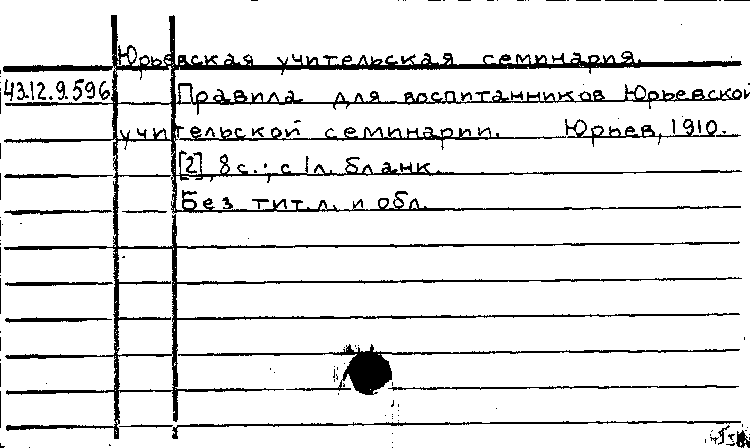 Юрьевская учительская семинария.
43.12.9.596 Правила для воспитанников Юрьевской
учительской семинарии. Юрьев, 1910.
[2], 8 с.; с 1 л. бланк.
Без тит. л. и обл.